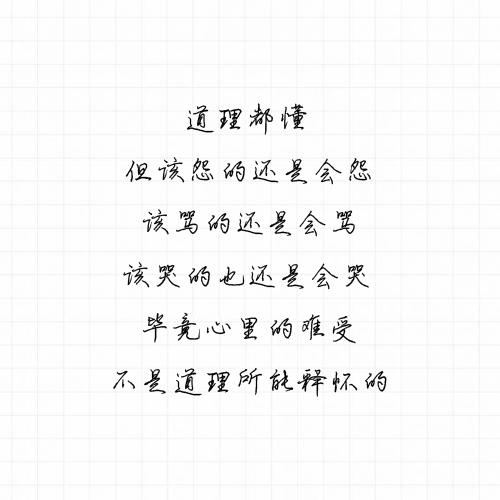 道理都懂
但该怨的还是会怨
该骂的还是会骂
该哭的也还是会哭
毕竟心里的难受
不是道理所能释怀的